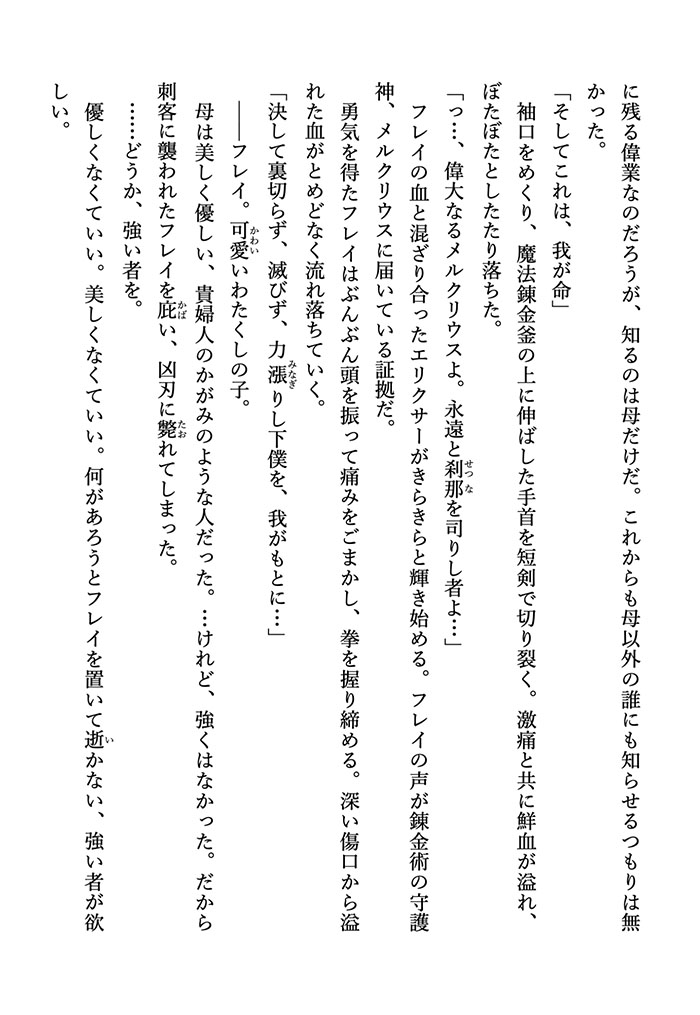 に残る偉業なのだろうが、知るのは母だけだ。これからも母以外の誰にも知らせるつもりは無
かった。
「そしてこれは、我が命」
袖口をめくり、魔法錬金釜の上に伸ばした手首を短剣で切り裂く。激痛と共に鮮血が溢れ、
ぼたぼたとしたたり落ちた。
「っ…、偉大なるメルクリウスよ。永遠と刹那せつなを司りし者よ…」
フレイの血と混ざり合ったエリクサーがきらきらと輝き始める。フレイの声が錬金術の守護
神、メルクリウスに届いている証拠だ。
勇気を得たフレイはぶんぶん頭を振って痛みをごまかし、拳を握り締める。深い傷口から溢
れた血がとめどなく流れ落ちていく。
「決して裏切らず、滅びず、力漲みなぎりし下僕を、我がもとに…」
――フレイ。可愛かわいいわたくしの子。
母は美しく優しい、貴婦人のかがみのような人だった。…けれど、強くはなかった。だから
刺客に襲われたフレイを庇かばい、凶刃に斃たおれてしまった。
……どうか、強い者を。
優しくなくていい。美しくなくていい。何があろうとフレイを置いて逝いかない、強い者が欲
しい。